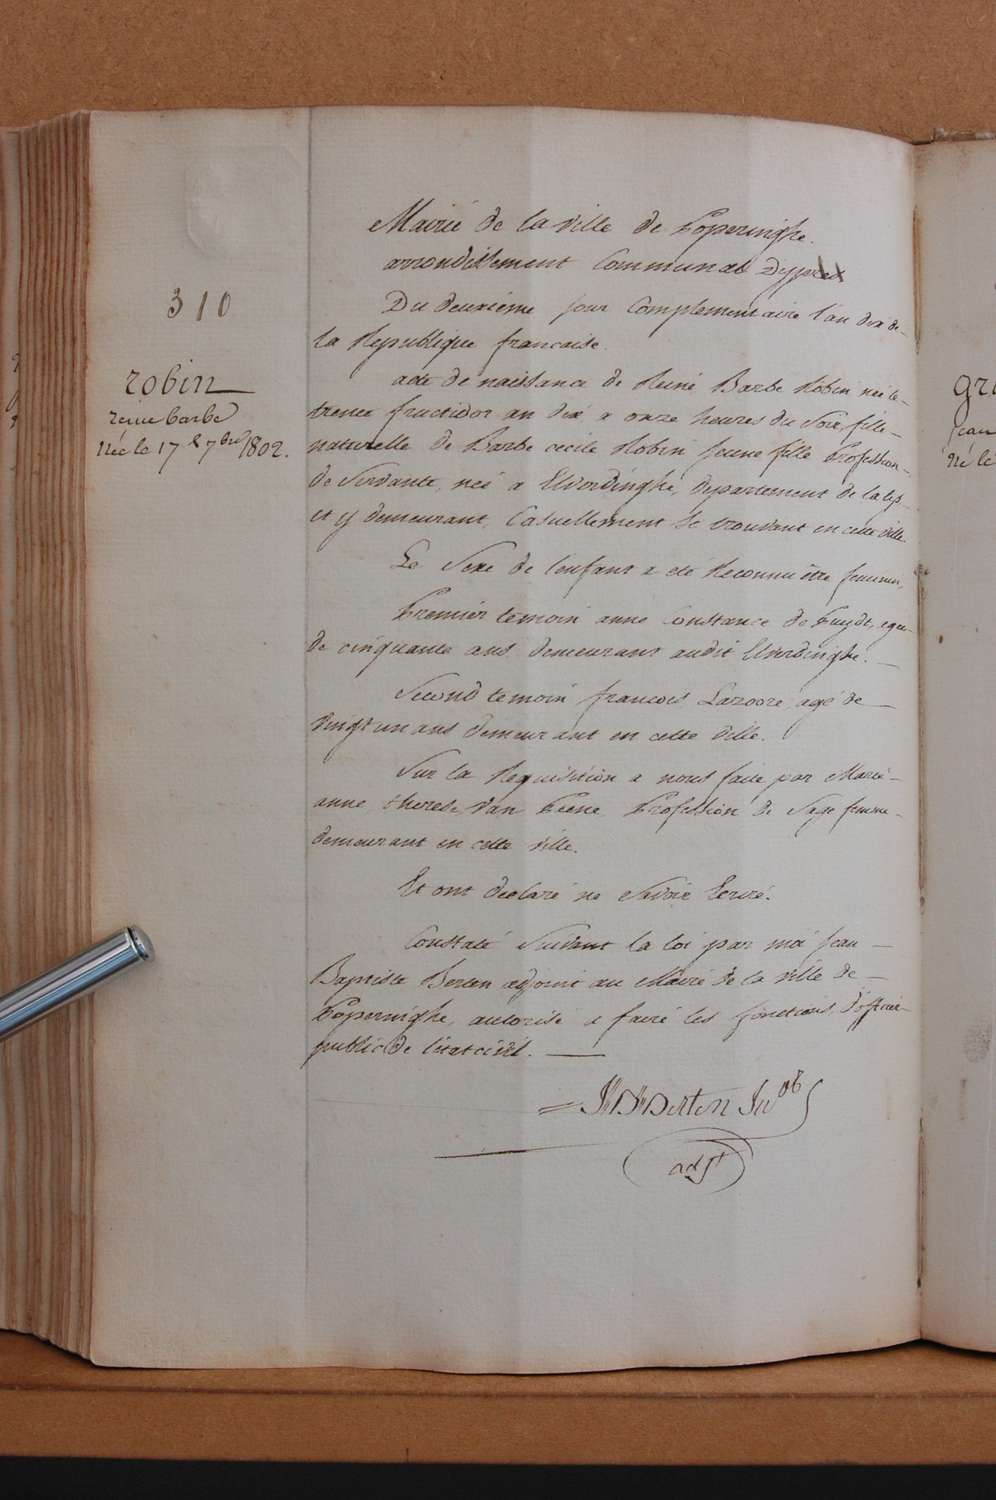 310
robin
renne barbe
Née le 17 7bre 1802.
Mairie de la ville de Poperinghe.
arrondissement Communal Dypres
Du deuxieme jour Complementaire l'an dix de
la Republique francaise.
acte de naissance de Reine Barbe Robin neé le
trente fructidor an dix a onze heures du Soir, fille
naturelle de Barbe cecile Robin jeune fille Profession
de Servante, neé a Elverdinghe, departement de la Lys
et y demeurant, Casuellement se trouvant en cette ville
Le Sexe de l'enfant a eté Reconnu être feminin,
Premier temoin anne Constance de Puydt, agee
de cinquante ans demeurant audit Elverdinghe.
Second temoin francois Lazoore, agé de
vingt un ans demeurant en cette ville.
Sur la Requisition a nous faite par Marie
anne therese Van Peene Profession de Sage femme
demeurant en cette ville.
Et ont declaré ne Savoir Ecrire.
Constaté Suivant la loi par moi Jean
Baptiste Berten adjoint au Maire de la ville de
Poperinghe, autorisé a faire les fonctions d'officier
public de l'état civil.
Berten
adjt
gr
jean
né le